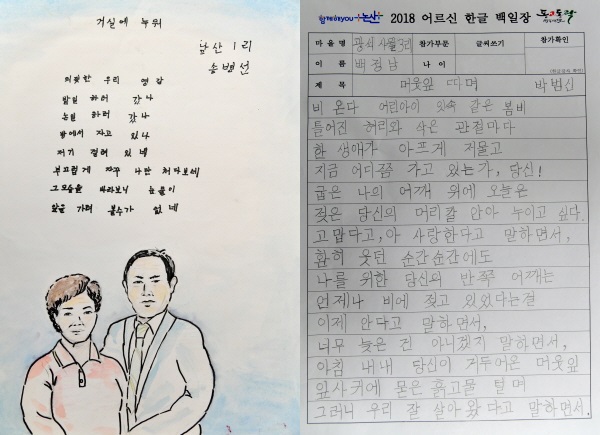 거실에 누워
남산 1리
송병선
미웃한 우리 영감
밭일 하러 갔나
논일 하러 갔나
밖에서 자고 있나
저기 걸려 있네
부끄럽게 자꾸 나만 처다보네
그 모습을 바라보니 눈물이
앞을 가려 볼수가 없네
함께해YOU 논산 2018 어르신 한글 백일장
마 을 명 광석 사월3리 참가부문 글씨쓰기 참가확인
이 름 백정남 나 이
제 목 머윗잎 따며 박범신
비 온다 어린아이 잇속 같은 봄비
틀어진 허리와 삭은 관절마다
한 생애가 아프게 저물고
지금 어디쯤 가고 있는가, 당신!
굽은 나의 어깨 위에 오늘은
젖은 당신의 머리칼 안아 누이고 싶다.
고맙다고, 아 사랑한다고 말하면서,
환히 웃던 순간순간에도
나를 위한 당신의 반쪽 어깨는
언제나 비에 젖고 있었다는걸
이제 안다고 말하면서,
너무 늦은 건 아니겠지 말하면서,
아침 내내 당신이 거두어온 머윗잎
잎사귀에 묻은 흙고물 털며
그러니 우리 잘 살아왔다고 말하면서.